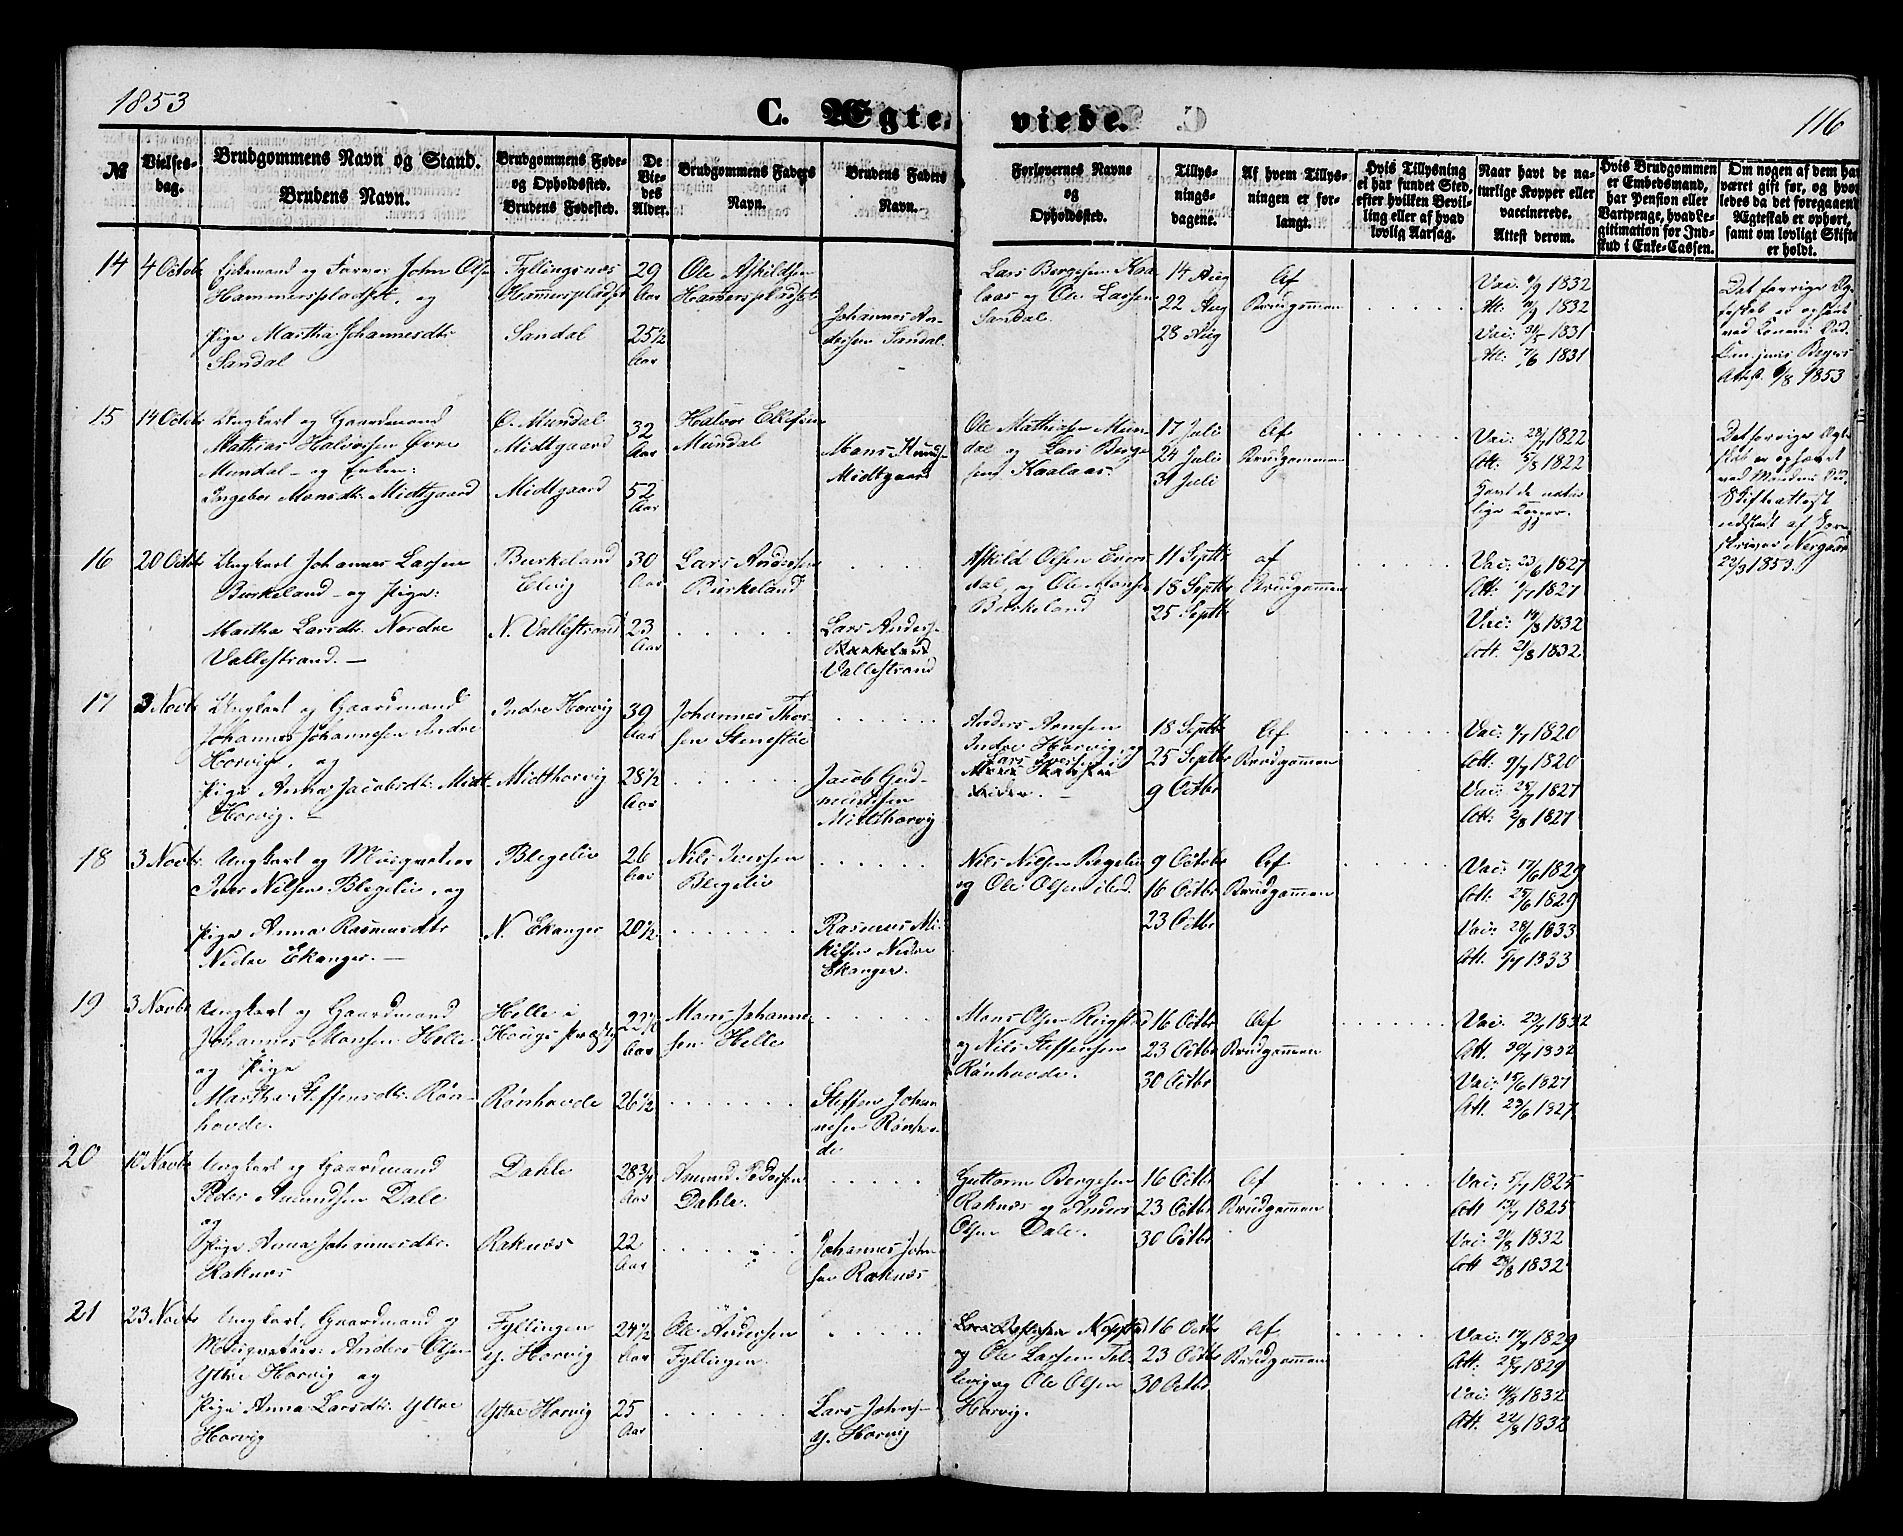 1853
C. Ægte viede.
116
№
Vielses-
dag.
Brudgommens Navn og Stand.
Brudens Navn.
Brudgommens Føde-
og Opholdssted.
Brudens Fødested.
De
Vie-
des
Alder.
Brudgommens Faders
Navn.
Brudens Faders
Navn.
Forlovernes Navne
og
Opholdssted.
Tillys-
nings-
dagene.
Af hvem Tillys-
ningen er for-
langt.
Hvis Tillysning
ei har fundet Sted,
efter hvilken Bevil-
ling eller af hvad
lovlig Aarsag.
Naar havt de na-
turlige Kopper eller
vaccinerede.
Attest derom.
Hvis Brudgommen
er Embedsmand,
har Pension eller
Vartpenge, hvad Le-
gitimation for Ind-
skud i Enke-Cassen.
Om nogen af dem har
været gift før, og hvor-
ledes da det foregaaende
Ægteskab er ophørt,
samt om lovligt Skifte
er holdt.
14
4 Octobr
Enkemand og Farver John Olsen
Hammerspladset, og
Pige Martha Johannesdtr
Sandal
Fyllingsnæs
Hammerspladset
Sandal
29
Aar
25½
Aar
Ole Askildsen
Hammerspladset
Johannes An-
dersen Sandal.
Lars Bergesen Kaa-
laas og Ole Larsen
Sandal.
14 Aug
22 Aug
28 Aug
Af
Brudgommen
Vac: /9 1832
At: /9 1832
Vac: 31/5 1831
At: 7/6 1831
Det forrige Æg-
teskab er ophævet
ved Konens Død.
Attest 6/8 1853
15
14 Octobr
Ungkarl og Gaardmand
Mathias Halvorsen Øvre
Mundal - og Enken:
Ingebor Monsdtr Midtgaard
Ø. Mundal
Midtgaard
Midtgaard
32
Aar
52
Aar
Halvor Ellefsen
Mundal
Mons Knuds-
Midtgaard
Ole Mathiasen Mun-
dal og Lars Berge-
sen Kaalaas.
17 Juli
24 Juli
31 Juli
Af
Brudgommen
Vac: 29/7 1822
Att: 5/8 1822
Havt de natur-
lige Kopper.
Det forrige Ægte-
skab er ophævet
ved Mandens Død.
Skifteattest
udstedt af Soren-
skriver
29/3 1853.
16
20 Octobr
Ungkarl Johannes Larsen
Birkeland - og Pige:
Martha Larsdtr Nordre
Vallestrand. -
Birkeland
Elvig
N. Vallestrand
30
Aar
23
Aar
Lars Andersen
Birkeland
Lars Anders-
Vallestrand
Askild Olsen Evens-
dal og Ole Monsen
Birkeland
11 Septbr
18 Septbr
25 Septbr
af
Brudgommen
Vac: 23/6 1827
Att: /7 1827
Vac: 14/8 1832
Att: 21/8 1832
17
3 Novbr
Ungkarl og Gaardmand
Johannes Johannesen Indre
Horvig, og
Pige Anna Jacobsdtr Midt-
Horvig. -
Indre Horvig
Midthorvig
39
Aar
28½
Aar
Johannes Thor-
sen Stenestøe
Jacob Gud-
mundsen
Midthorvig
Anders Arnesen
Indre Horvig, og
Lars Iversen
18 Septbr
25 Septbr
9 Octbr
Af
Brudgommen
Vac: /7 1820
Att: 9/7 1820
Vac: 28/7 1827
Att: 2/8 1827
18
3 Novbr
Ungkarl og Musqueteer
Iver Nilsen Blegelie, og
Pige Anna Rasmusdtr
Nedre Ekanger. -
Blegelie
N. Ekanger
26
Aar
20½
Nils Iversen
Blegelie
Rasmus Mi-
kelsen Nedre
Ekanger.
Nils Nilsen Blegelie
og Ole Olsen ibid.
9 Octobr
16 Octbr
23 Octbr
Af
Brudgommen
Vac: 17/6 1829
Att: 25/6 1829
Vac: 28/6 1833
Att: 5/7 1833
19
3 Novbr
Ungkarl og Gaardmand
Johannes Monsen Helle
og Pige
Martha Steffensdtr Røn-
hovde.
Helle i
Hougs Præstegj.
Rønhovde
22½
Aar
26½
Mons Johanne-
sen Helle
Steffen Johan-
nesen Rønhov-
de
Mons Olsen Rigstad
og Nils Steffensen
Rønhovde.
16 Octbr
23 Octbr
30 Octbr
Af
Brudgommen
Vac: 23/7 1832
Att: 30/7 1832
Vac: 15/6 1827
Att. 23/6 1827
20
10 Novbr
Ungkarl og Gaardmand
Peder Amundsen Dale
og
Pige Anna Johannesdtr
Raknæs
Dahle
Raknæs
28¾
Aar
22
Aar
Amund Pedersen
Dahle.
Johannes John-
sen Raknæs
Guttorm Bergesen
Raknæs og Anders
Olsen Dale.
16 Octbr
23 Octbr
30 Octbr
Af
Brudgommen
Vac: 5/7 1825
Att 13/7 1825
Vac: 21/8 1832
Att 28/8 1832
21
23 Novbr
Ungkarl, Gaardmand og
Musqueteer: Anders Olsen
Ytre Horvig og
Pige Anna Larsdtr Ytre
Horvig
Fyllingen
Y. Horvig
Ytre Horvig
24½
Aar
25
Aar
Ole Andersen
Fyllingen.
Lars Johans-
Y. Horvig
og Ole Larsen Tel-
levig og Ole Olsen
Horvig.
16 Octbr
23 Octbr
30 Octbr
Af
Brudgommen
Vac: 17/7 1829
Att: 25/7 1829
Vac: 14/8 1832
Att. 22/8 1832